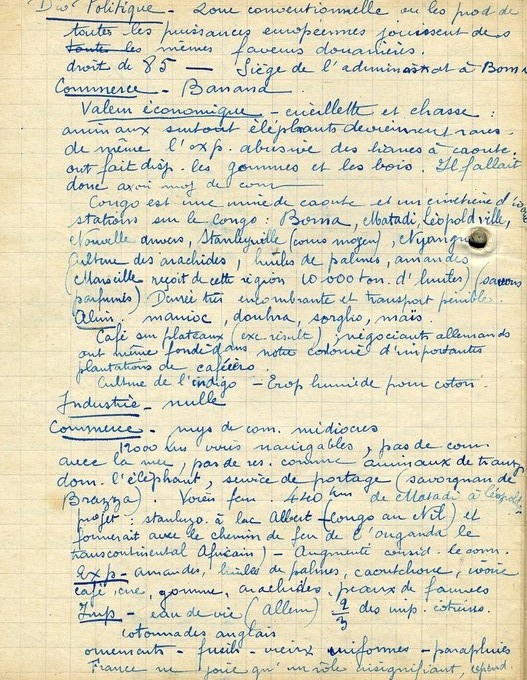 Politique - Zone conventionnelle où les prod de
toutes les puissances européennes jouissent des
toutes les mêmes faveurs douanières.
droit de 85 — Siège de l'administrat à Boma
Commerce - Banana.
Valeur économique - cueillette et chasse :
animaux surtout éléphants deviennent rares -
de même l'exp. abusive des lianes à caoutc.
ont fait disp. les gommes et les bois. Il fallait
donc avoir moy de com
Congo est une mine de caoutc et un cimetière d'ivoire
stations sur le Congo : Boma, Matadi, Léopoldville,
Nouvelle Anvers, Stanleyville (cours moyen), Nyangwe
Culture des arachides, huiles de palmes, amandes
(Marseille reçoit de cette région 10.000 ton. d'huiles) (savons
parfumés) Denrée très encombrante et transport pénible.
Alim. manioc, douhra, sorgho, maïs.
Café sur plateaux (exc résult) ; négociants allemands
ont même fondé dans notre colonie d'importantes
plantations de caféiers.
Culture de l'indigo - Trop humide pour coton.
Industrie - nulle
Commerce - moys de com. médiocres
12000 kms voies navigables, pas de com.
avec la mer, pas de res. comme animaux de transp
dom. l'éléphant, service de portage (savorgnan de
Brazza). Voies fer. 440 kms de Matadi à Léopold
projet : à lac Albert (Congo au Nil) et
formerait avec le chemin de fer de l'Ouganda le
transcontinental Africain) - Augmente consid. le com.
Exp - amandes, huiles de palmes, caoutchouc, ivoire
café, cire, gomme, arachides, peaux de fauves
Imp - eau de vie (Allem) 2/3 des imp.
cotonnades anglais
ornements - fusils - vieux uniformes - parapluies
France ne joue qu'un rôle insignifiant, cepend.